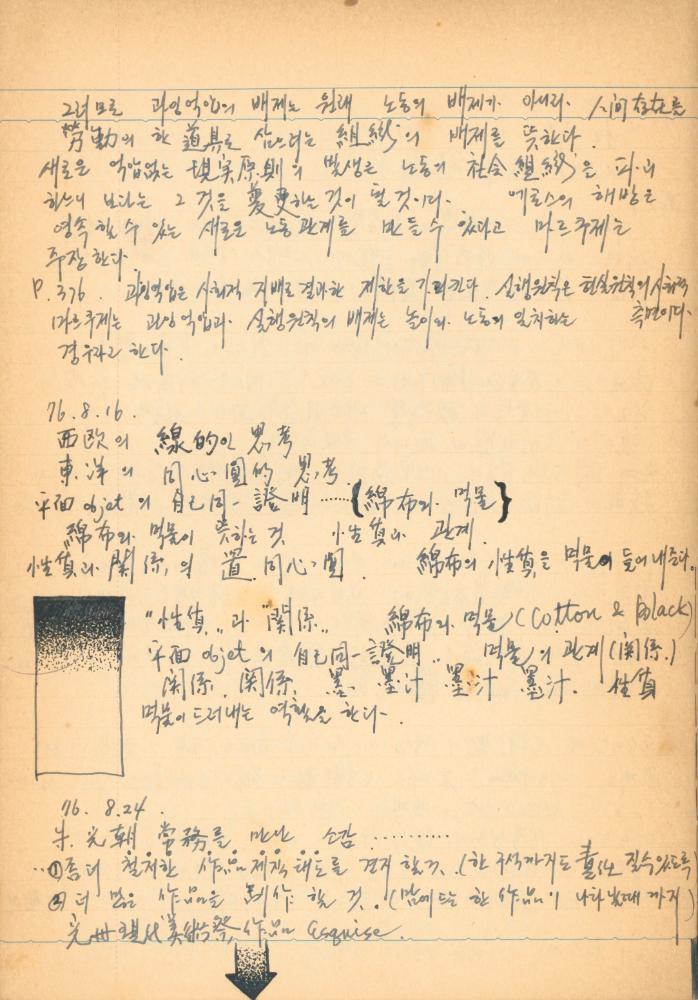 그러므로 과잉억압의 배제는 원래 노동의 배제가 아니라. 人间存在를
勞動의 한 道具로 삼으려는 組織의 배제를 뜻한다.
새로운 억압없는 現実原則의 발생은 노동의 社会組織을 파괴
하느니 보다는 그것을 변경하는 것이 될 것이다. 에로스의 해방은
영속할 수 있는 새로운 노동관계를 만들 수 있다고 마르쿠제는
주장한다.
P. 376. 과잉억압은 사회적 지배로 결과한 제한을 가리킨다. 실행원칙은 현실원칙의 사회적 측면이다.
마르쿠제는 과잉억압과 실행원칙의 배제는 놀이와 노동의 일치하는
경우라고 한다.
76. 8. 16.
西欧의 線的인 思考
東洋의 同心圓的 思考.
平面 objet의 自己同一證明 ······ {綿布와 먹물}
綿布와 먹물이 뜻하는 것 性質과 관계.
性質과 関係의 置 同心圓. 綿布의 性質을 먹물이 들어내준다.
"性質"과 "関係" 綿布와 먹물 (Cotton & Black)
平面 objet의 自己同一證明" 먹물의 관계 (関係.)
関係. 関係. 墨 墨汁 墨汁 墨汁. 性質
먹물이 드러내는 역할을 한다.
76. 8. 24.
朱光朝 常務를 만난 소감 ·········
①좀더 철저한 作品제작 태도를 견지 할것. (한 구석까지도 책임 질수있도록)
②더 많은 作品을 制作 할 것. (맘에 드는 한 作品이 나타날때 까지)
光州現代美術祭 作品 esquise.